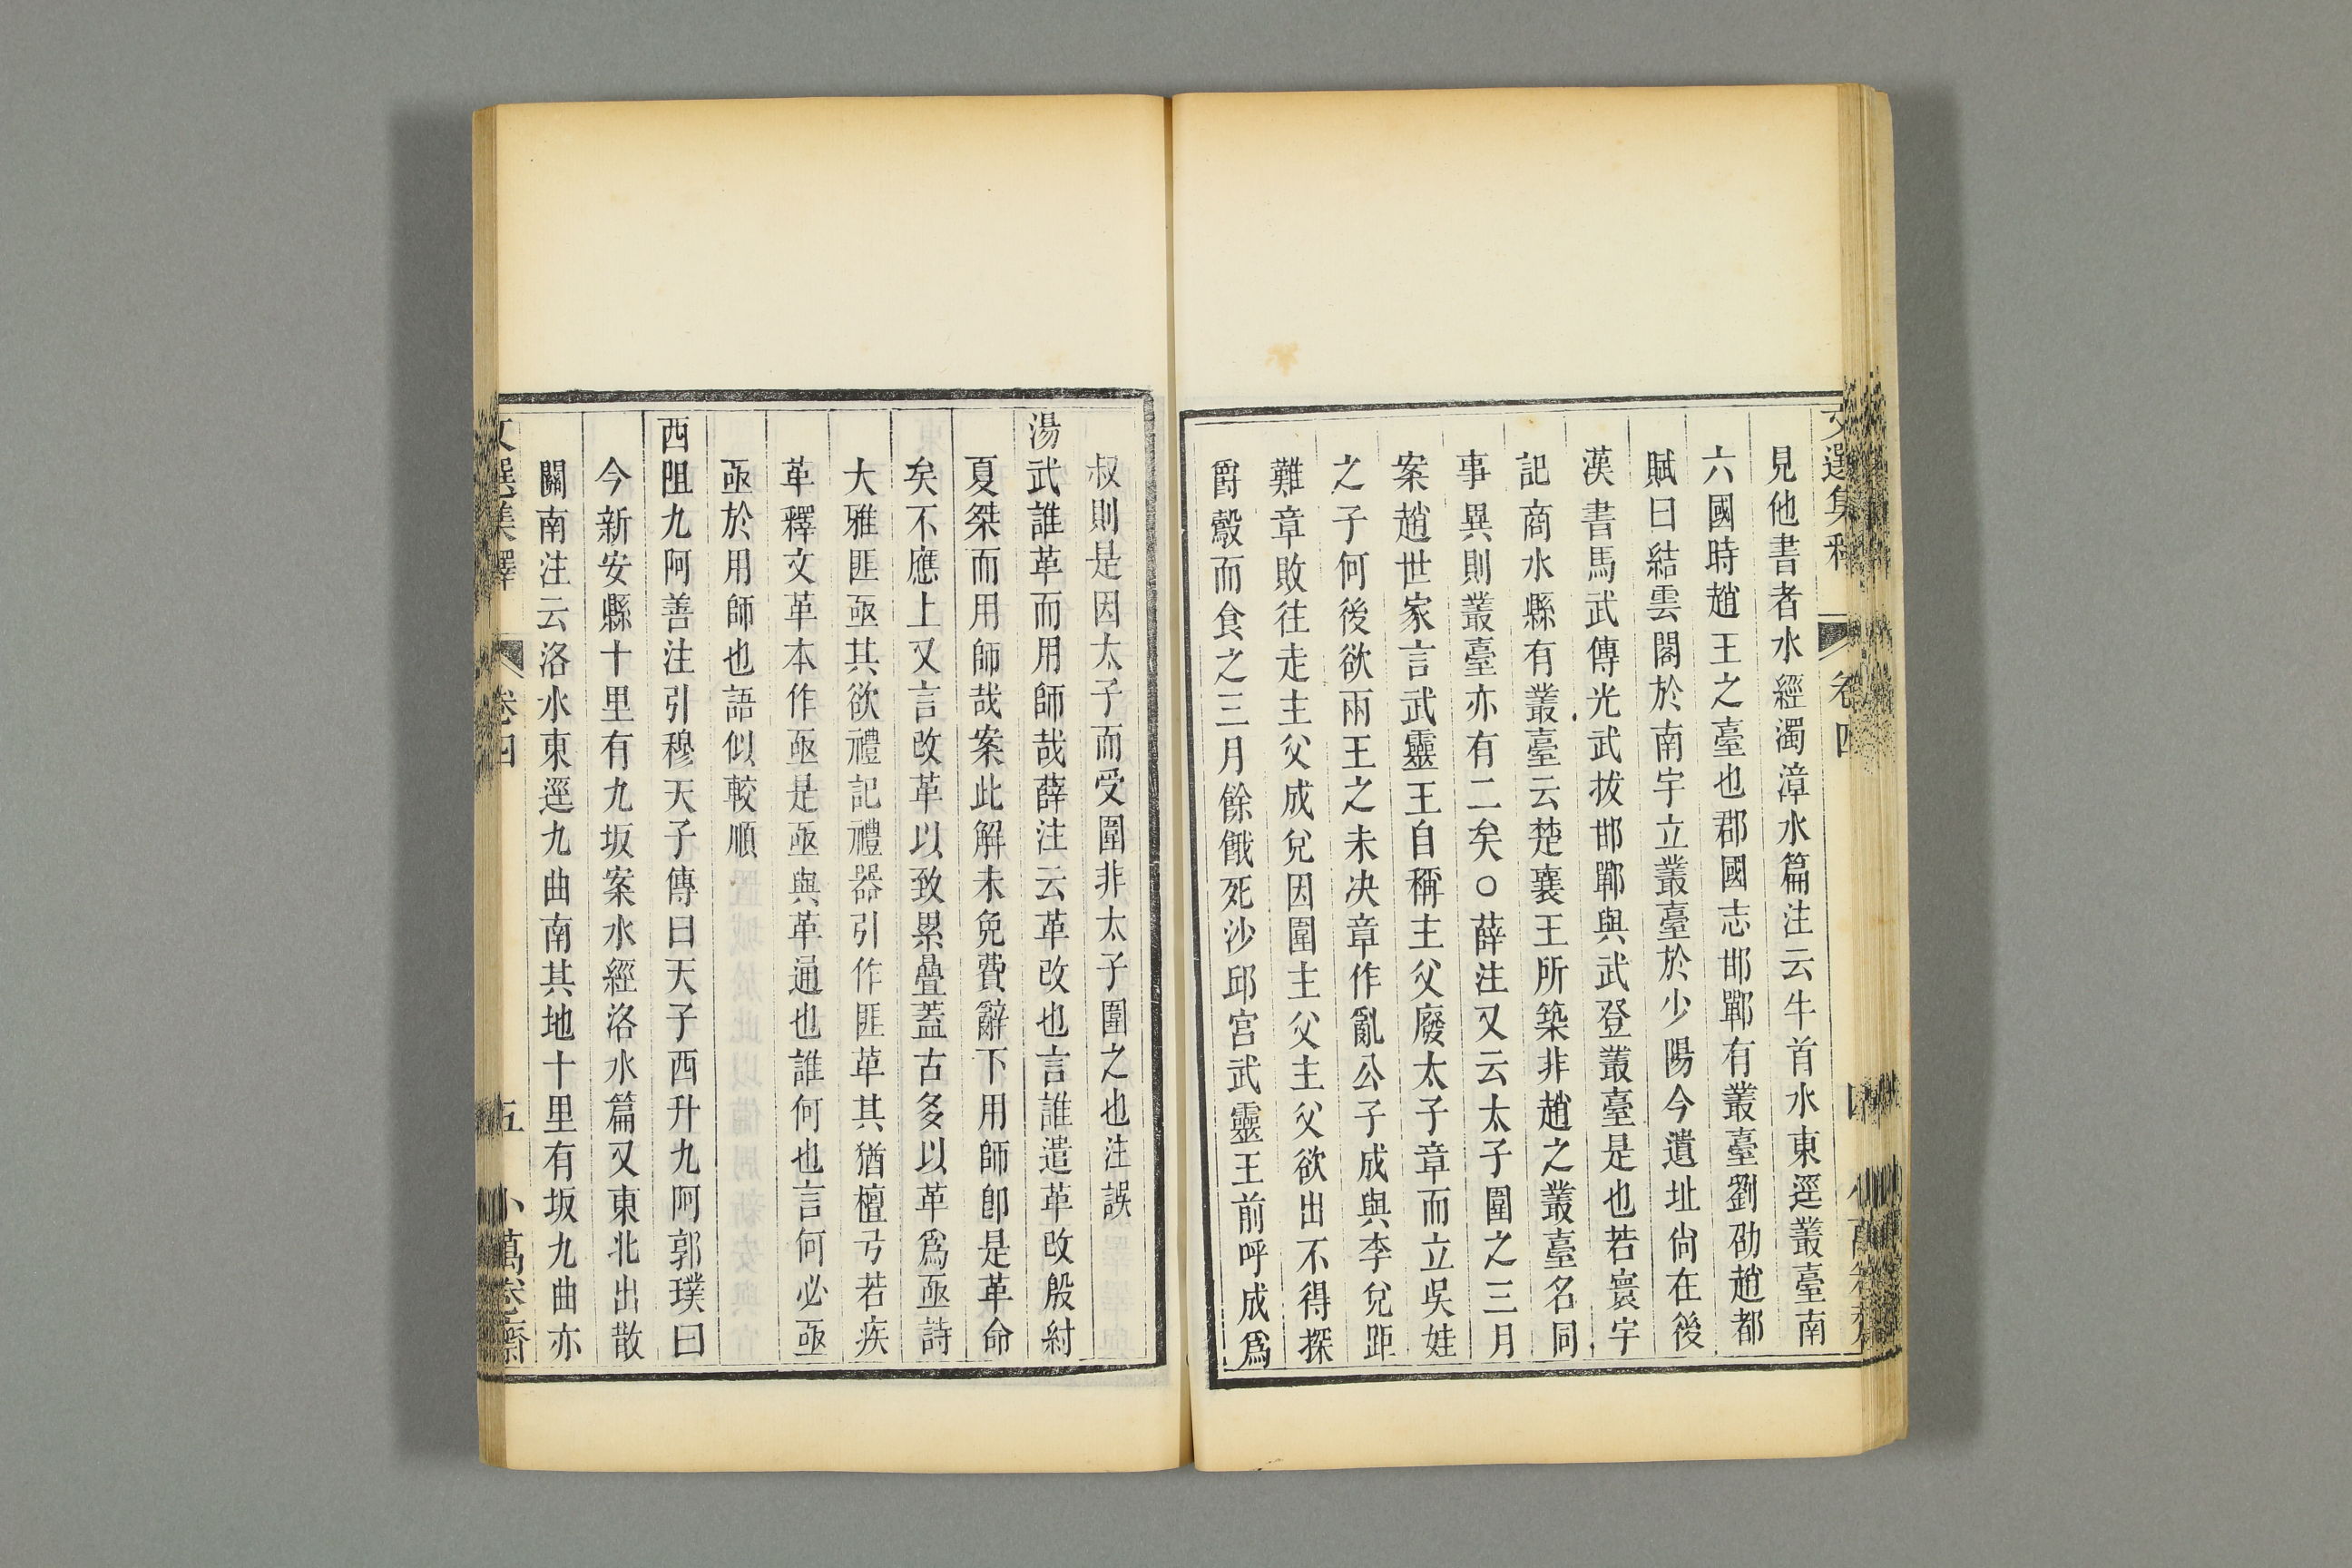 見他書者水經濁漳水篇注云牛首水東逕叢臺南
六國時趙王之臺也郡國志邯鄲有叢臺劉劭趙都
賦曰結雲閣於南宇立叢臺於少陽今遺址尙在後
漢書馬武傳光武拔邯鄲與武登叢臺是也若寰宇
記商水縣有叢臺云楚襄王所築非趙之叢臺名同
事異則叢臺亦有二矣○薛注又云太子圍之三月
案趙世家言武靈王自稱主父廢太子章而立吳娃
之子何後欲兩王之未决章作亂公子成與李兌距
難章敗往走主父成兌因圍主父主父欲出不得探
爵鷇而食之三月餘餓死沙邱宮武靈王前呼成爲
叔則是因太子而受圍非太子圍之也注誤
湯武誰革而用師哉薛注云革改也言誰遣革改殷紂
夏桀而用師哉案此解未免費辭下用師卽是革命
矣不應上又言改革以致累疊蓋古多以革爲亟詩
大雅匪亟其欲禮記禮器引作匪革其猶檀弓若疾
革釋文革本作亟是亟與革通也誰何也言何必亟
亟於用師也語似較順
西阻九阿善注引穆天子傳曰天子西升九阿郭璞曰
今新安縣十里有九坂案水經洛水篇又東北出散
關南注云洛水東逕九曲南其地十里有坂九曲亦
文選集釋 卷四 五 小萬卷齋